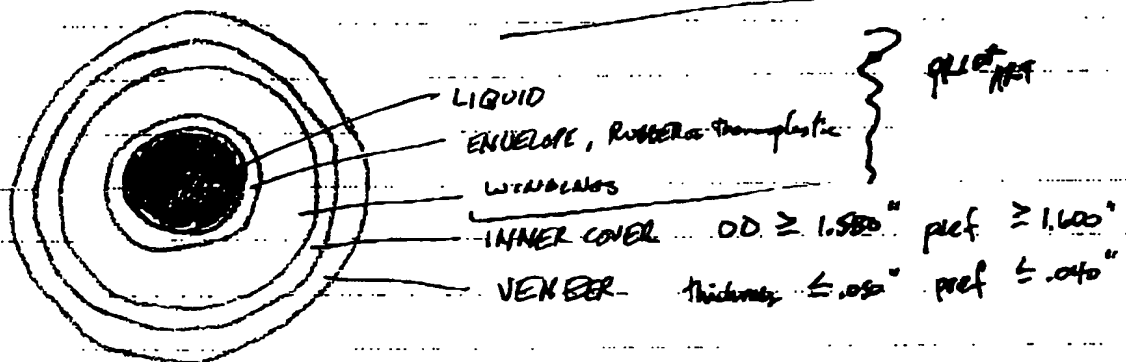 LIQUID
PRIOR ART
ENVELOPE, RUBBER or thermoplastic
WINDINGS
INNER COVER OD ≥ 1.580" pref ≥ 1.600"
VENEER thickness ≤ .050" pref ≤ .040"